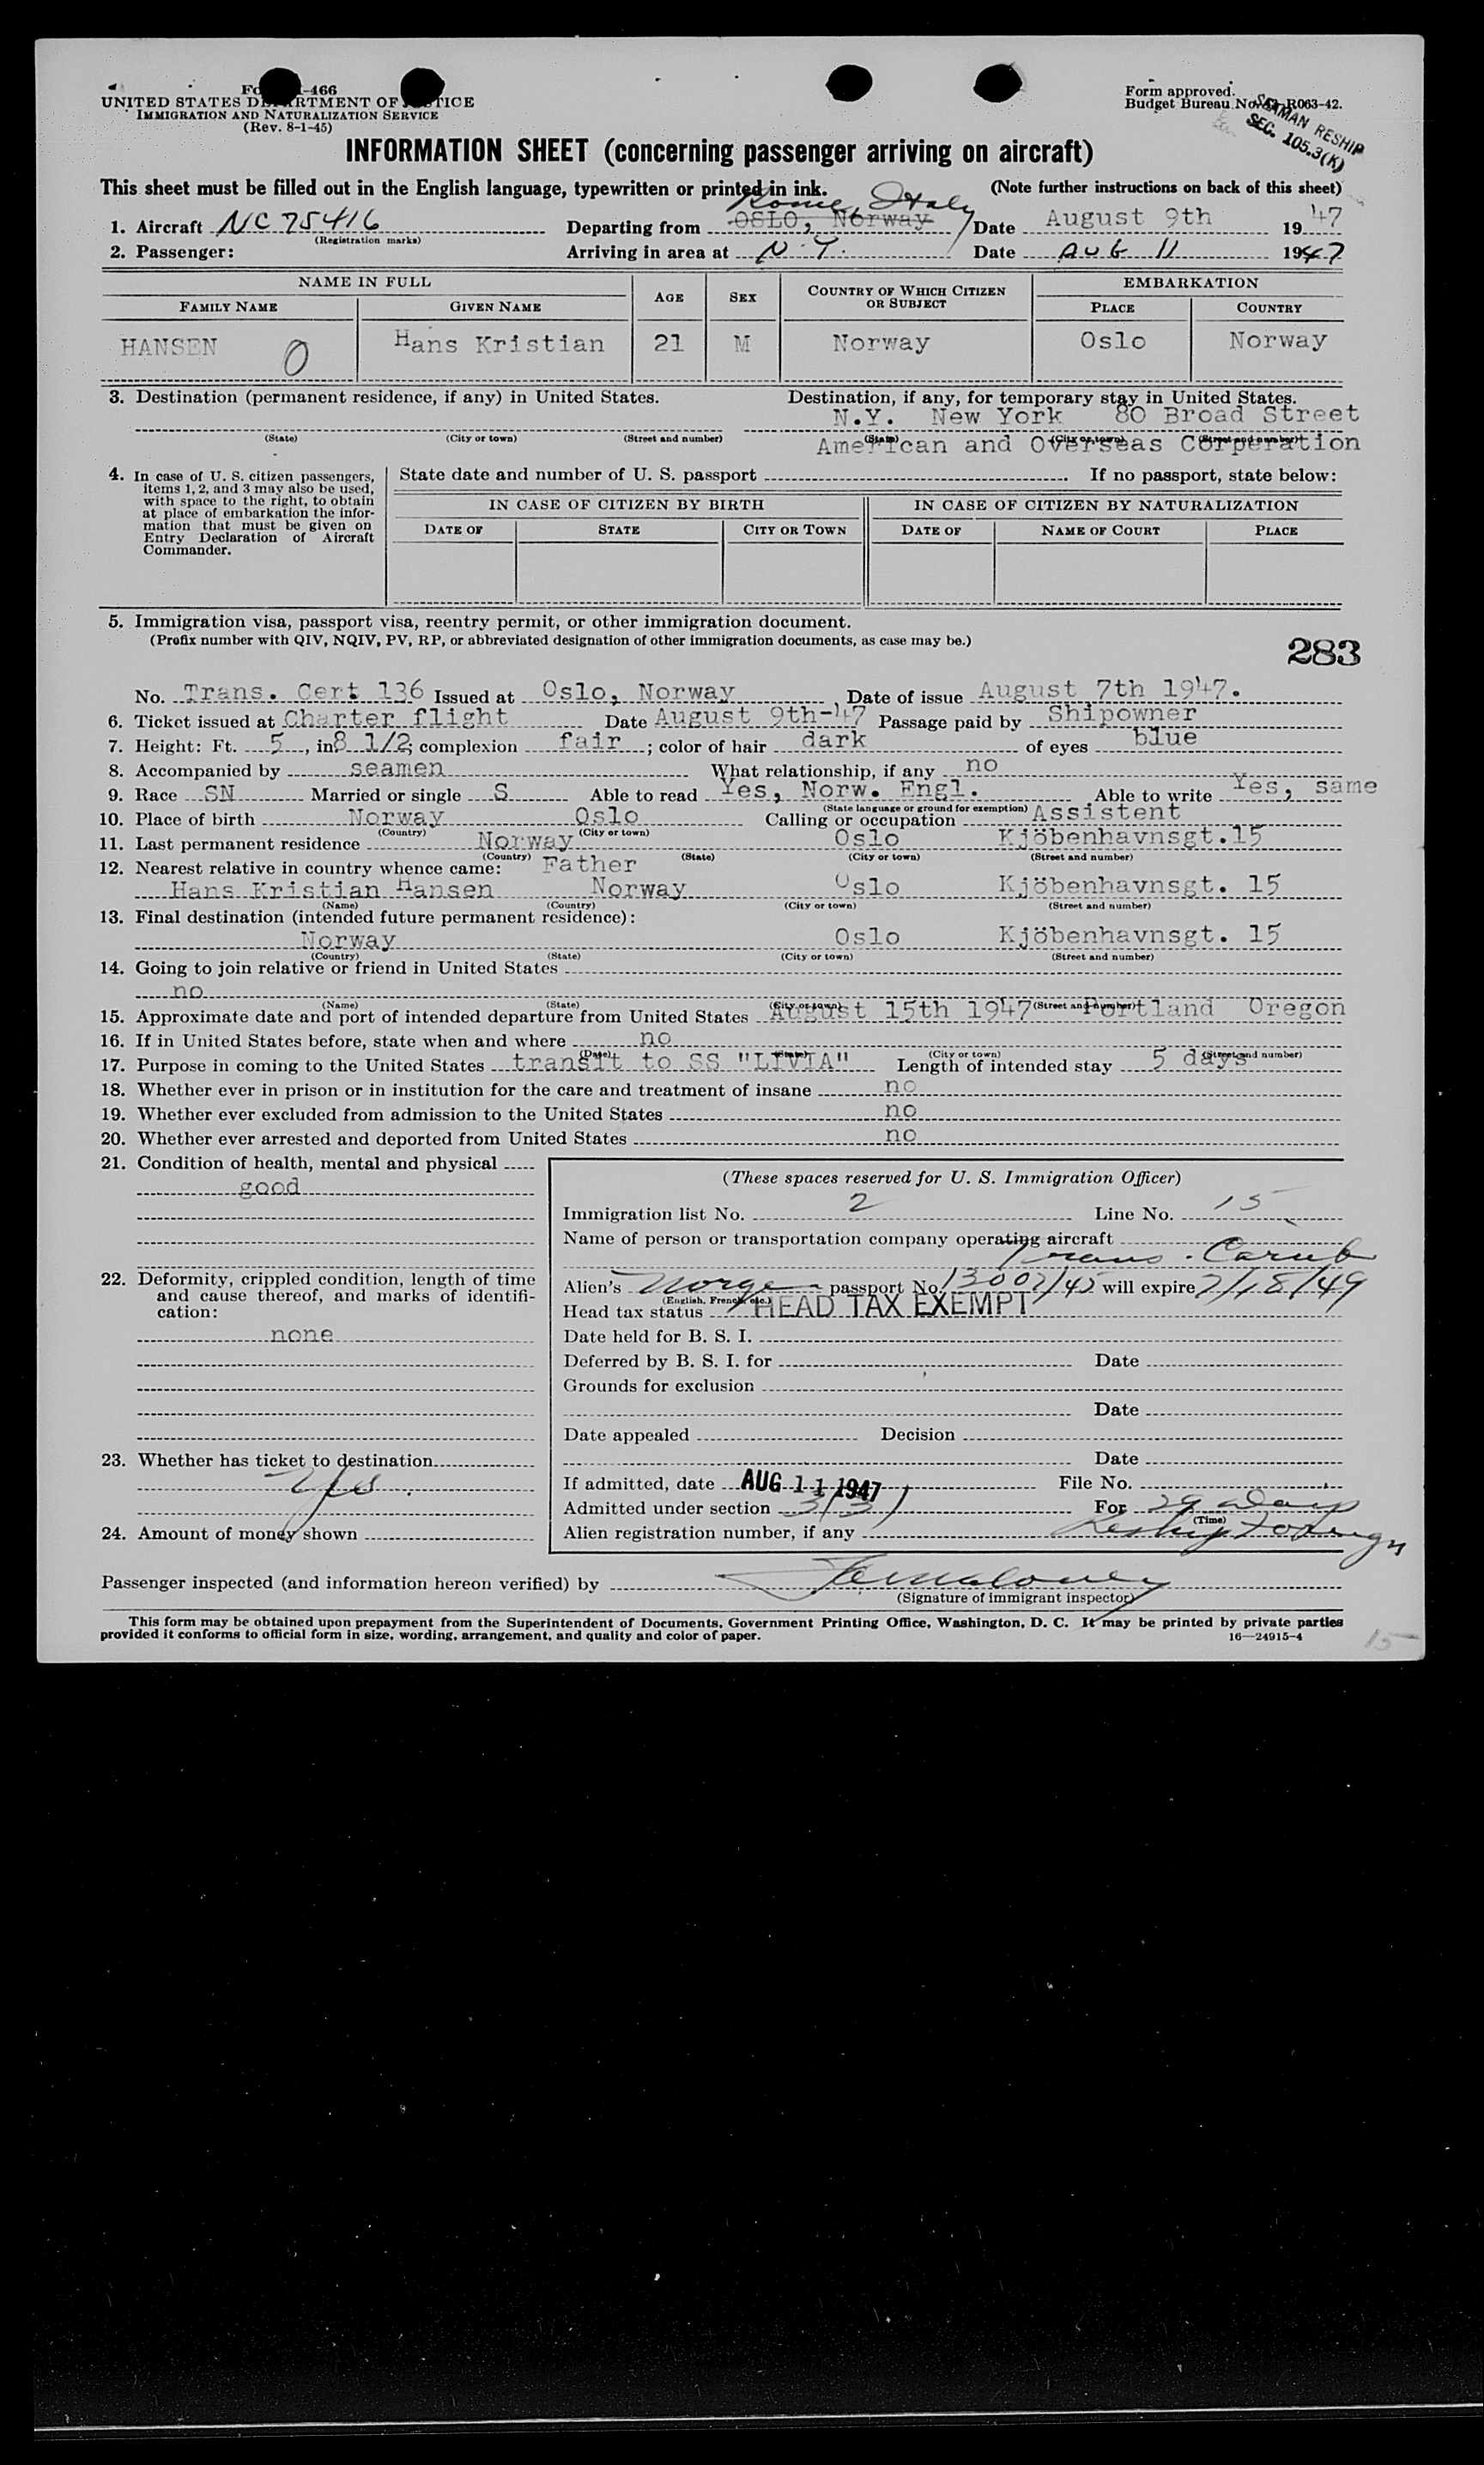 -466
UNITED STATES DEPARTMENT OF JUSTICE
IMMIGRATION AND NATURALIZATION SERVICE
(Rev. 8-1-45)
Form approved.
Budget Bureau No. R063-42.
SEAMAN RESHIP
SEC. 105.3(K)
INFORMATION SHEET (concerning passenger arriving on aircraft)
This sheet must be filled out in the English language, typewritten or printed in ink. (Note further instructions on back of this sheet)
Rome, Italy
1. Aircraft NC 75416 Departing from OSLO, Norway Date August 9th 1947
(Registration marks)
2. Passenger: Arriving in area at N.Y. Date AUG 11 1947
NAME IN FULL AGE SEX COUNTRY OF WHICH CITIZEN OR SUBJECT EMBARKATION
FAMILY NAME GIVEN NAME PLACE COUNTRY
HANSEN O Hans Kristian 21 M Norway Oslo Norway
3. Destination (permanent residence, if any) in United States. Destination, if any, for temporary stay in United States.
N.Y. New York 80 Broad Street
(State) (City or town) (Street and number) (State) (City or town) (Street and number)
American and Overseas Corperation
4. In case of U. S. citizen passengers, items 1, 2, and 3 may also be used, with space to the right, to obtain at place of embarkation the information that must be given on Entry Declaration of Aircraft Commander.
State date and number of U. S. passport If no passport, state below:
IN CASE OF CITIZEN BY BIRTH IN CASE OF CITIZEN BY NATURALIZATION
DATE OF STATE CITY OR TOWN DATE OF NAME OF COURT PLACE
5. Immigration visa, passport visa, reentry permit, or other immigration document.
(Prefix number with QIV, NQIV, PV, RP, or abbreviated designation of other immigration documents, as case may be.)
283
No. Trans. Cert 136 Issued at Oslo, Norway Date of issue August 7th 1947.
6. Ticket issued at Charter flight Date August 9th-47 Passage paid by Shipowner
7. Height: Ft. 5, in 8 1/2; complexion fair; color of hair dark of eyes blue
8. Accompanied by seamen What relationship, if any no
9. Race SN Married or single S Able to read Yes, Norw. Engl. Able to write Yes, same
(State language or ground for exemption)
10. Place of birth Norway Oslo Calling or occupation Assistent
(Country) (City or town)
11. Last permanent residence Norway Oslo Kjöbenhavnsgt.15
(Country) (State) (City or town) (Street and number)
12. Nearest relative in country whence came: Father
Hans Kristian Hansen Norway Oslo Kjöbenhavnsgt. 15
(Name) (Country) (City or town) (Street and number)
13. Final destination (intended future permanent residence):
Norway Oslo Kjöbenhavnsgt. 15
(Country) (State) (City or town) (Street and number)
14. Going to join relative or friend in United States
no
(Name) (State) (City or town) (Street and number)
15. Approximate date and port of intended departure from United States August 15th 1947 Portland Oregon
16. If in United States before, state when and where no
(Date) (State) (City or town) (Street and number)
17. Purpose in coming to the United States transit to SS "LIVIA" Length of intended stay 5 days
18. Whether ever in prison or in institution for the care and treatment of insane no
19. Whether ever excluded from admission to the United States no
20. Whether ever arrested and deported from United States no
21. Condition of health, mental and physical
good
22. Deformity, crippled condition, length of time and cause thereof, and marks of identification:
none
23. Whether has ticket to destination
Yes.
24. Amount of money shown
(These spaces reserved for U. S. Immigration Officer)
Immigration list No. 2 Line No. 15
Name of person or transportation company operating aircraft
Trans. Carib
Alien's Norge passport No. 13002/45 will expire 7/18/49
(English, French, etc.)
Head tax status HEAD TAX EXEMPT
Date held for B. S. I.
Deferred by B. S. I. for Date
Grounds for exclusion
Date
Date appealed Decision
Date
If admitted, date AUG 11 1947 File No.
Admitted under section 3(3) For 29 Days
(Time)
Alien registration number, if any Reship foreign
Passenger inspected (and information hereon verified) by
(Signature of immigrant inspector)
This form may be obtained upon prepayment from the Superintendent of Documents, Government Printing Office, Washington, D. C. It may be printed by private parties
provided it conforms to official form in size, wording, arrangement, and quality and color of paper. 16—24915-4
15